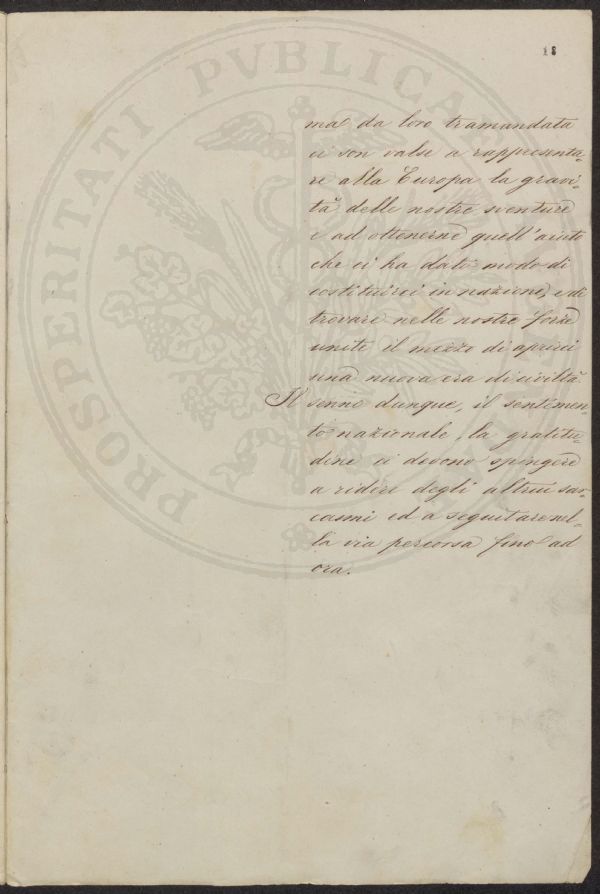 18
PROSPERITATI PVBLICAE
ma da loro tramandata
ci son valse a rappresenta-
re alla Europa la gravi-
tà delle nostre sventure
e ad ottenerne quell'aiuto
che ci ha dato modo di
costituirci in nazione, e di
trovare nelle nostre forze
unite il mezzo di aprirci
una nuova era di civiltà
Il senno dunque, il sentimen-
to nazionale, la gratitu-
dine ci devono spingere
a ridere degli altrui sar-
casmi ed a seguitare nel-
la via percorsa fino ad
ora.